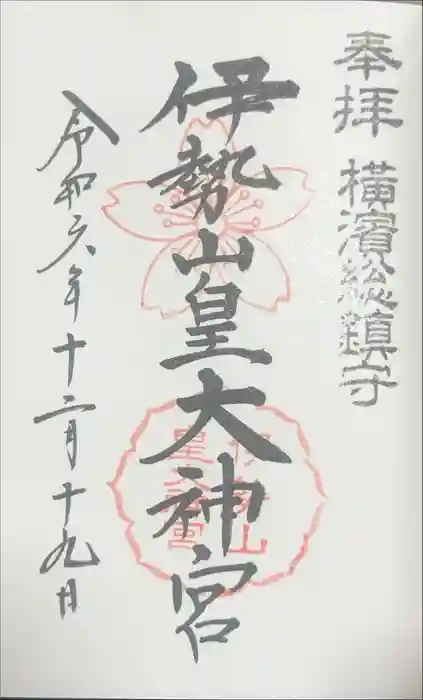 奉拝 横濱総鎮守
伊勢山皇大神宮
令和六年十二月十九日
伊勢山
皇大神宮